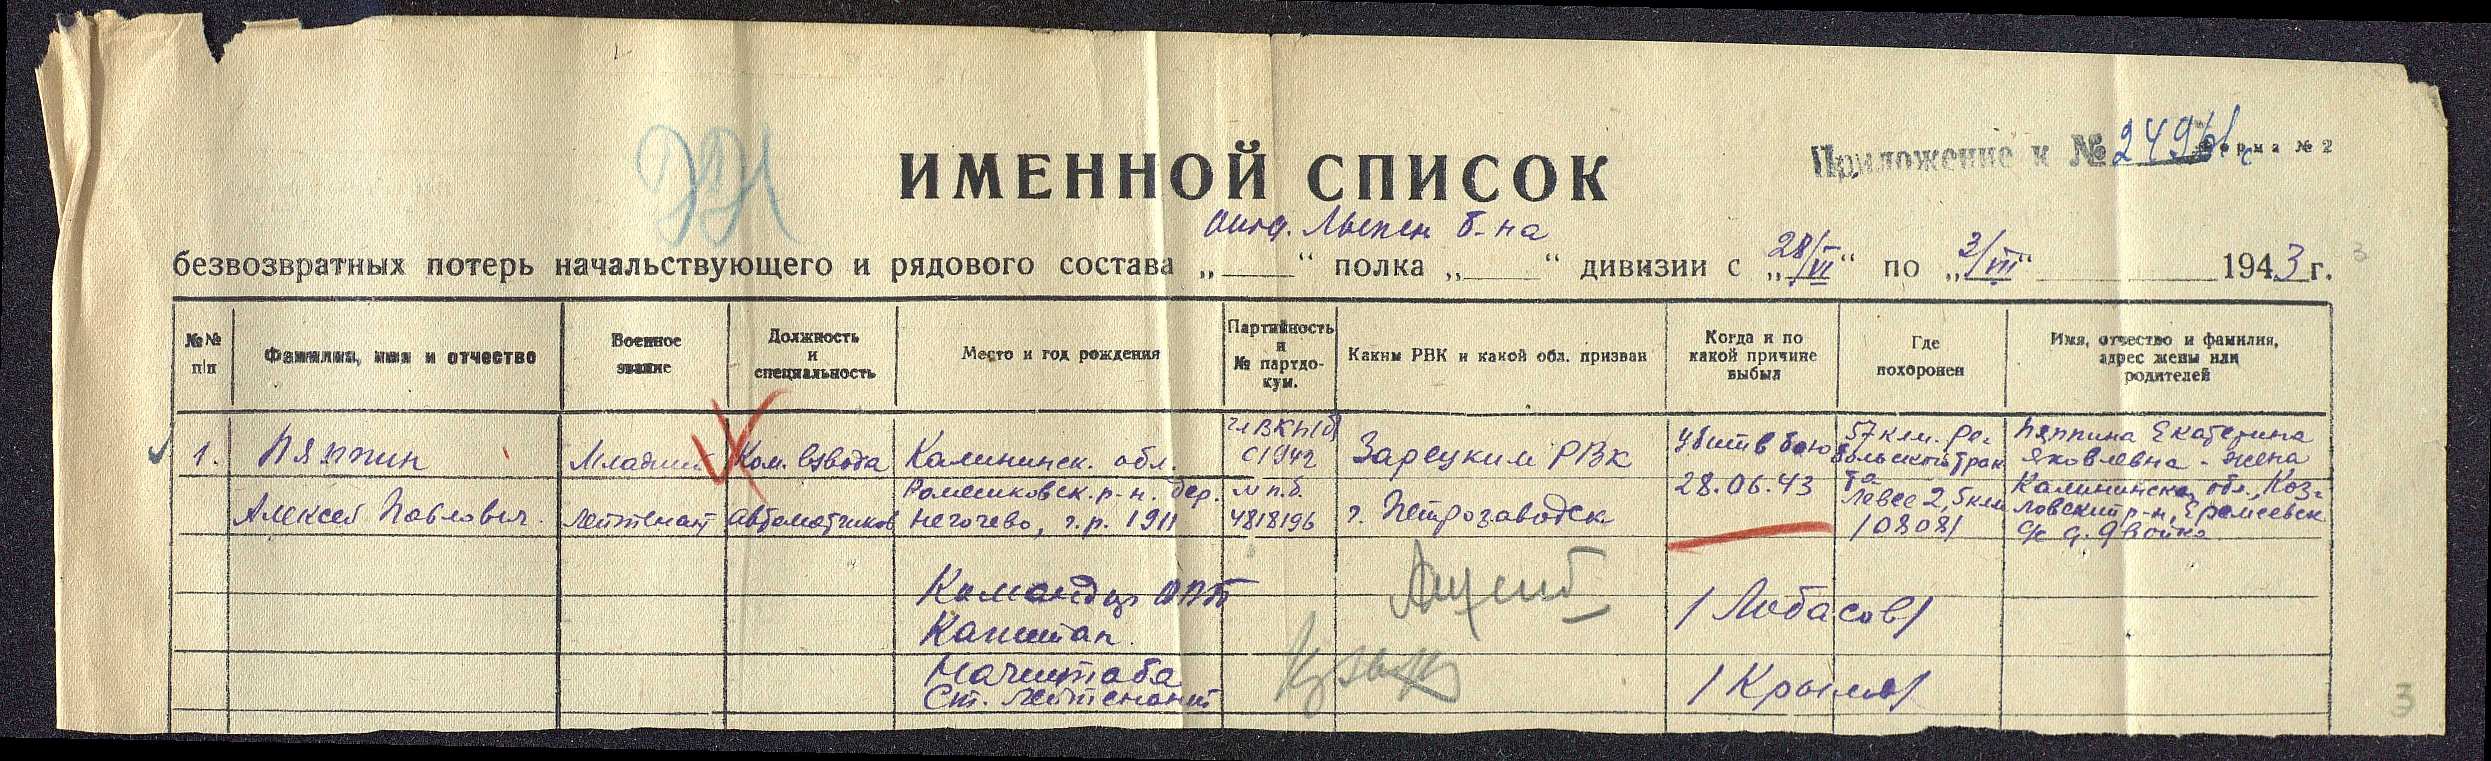 Приложение к № 2496/с Форма № 2
ИМЕННОЙ СПИСОК
отд. Лыжн б-на
безвозвратных потерь начальствующего и рядового состава „ “ полка „ “ дивизии с „28/VI“ по „3/VII“ 1943 г.
№№ п/п
Фамилия, имя и отчество
Военное звание
Должность и специальность
Место и год рождения
Партийность и № партдокум.
Каким РВК и какой обл. призван
Когда и по какой причине выбыл
Где похоронен
Имя, отчество и фамилия, адрес жены или родителей
1.
Пяппин
Алексей Павлович.
Младший
лейтенант
Ком. взвода
автоматчиков
Калининск. обл.
р-н. дер.
Негочево, г.р. 1911
чл ВКП(б)
с 1942
м п.б.
4818196
Зарецким РВК
г. Петрозаводск
убит в бою
28.06.43
57 клм.
левее 2,5 клм
/0808/
Пяппина Екатерина
Яковлевна - жена
Калининская обл., Коз-
ловский р-н, Еремеевск
с/с д. Двойка
Командир
Капитан.
/Лобасов/
Начштаба
Ст. лейтенант
/Крылов/
3
3